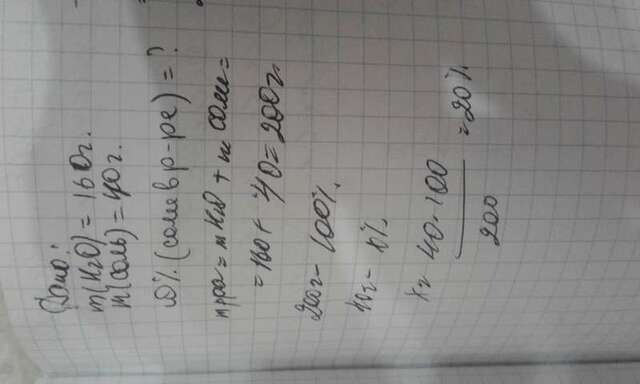 Дано:
m(H2O) = 160г.
m(соль) = 40г.
ω%(соли в р-ре) = ?
mрра = mH2O + m соли =
= 160 + 40 = 200г.
200г - 100%.
40г - x%.
x = 40·100
200
= 20%